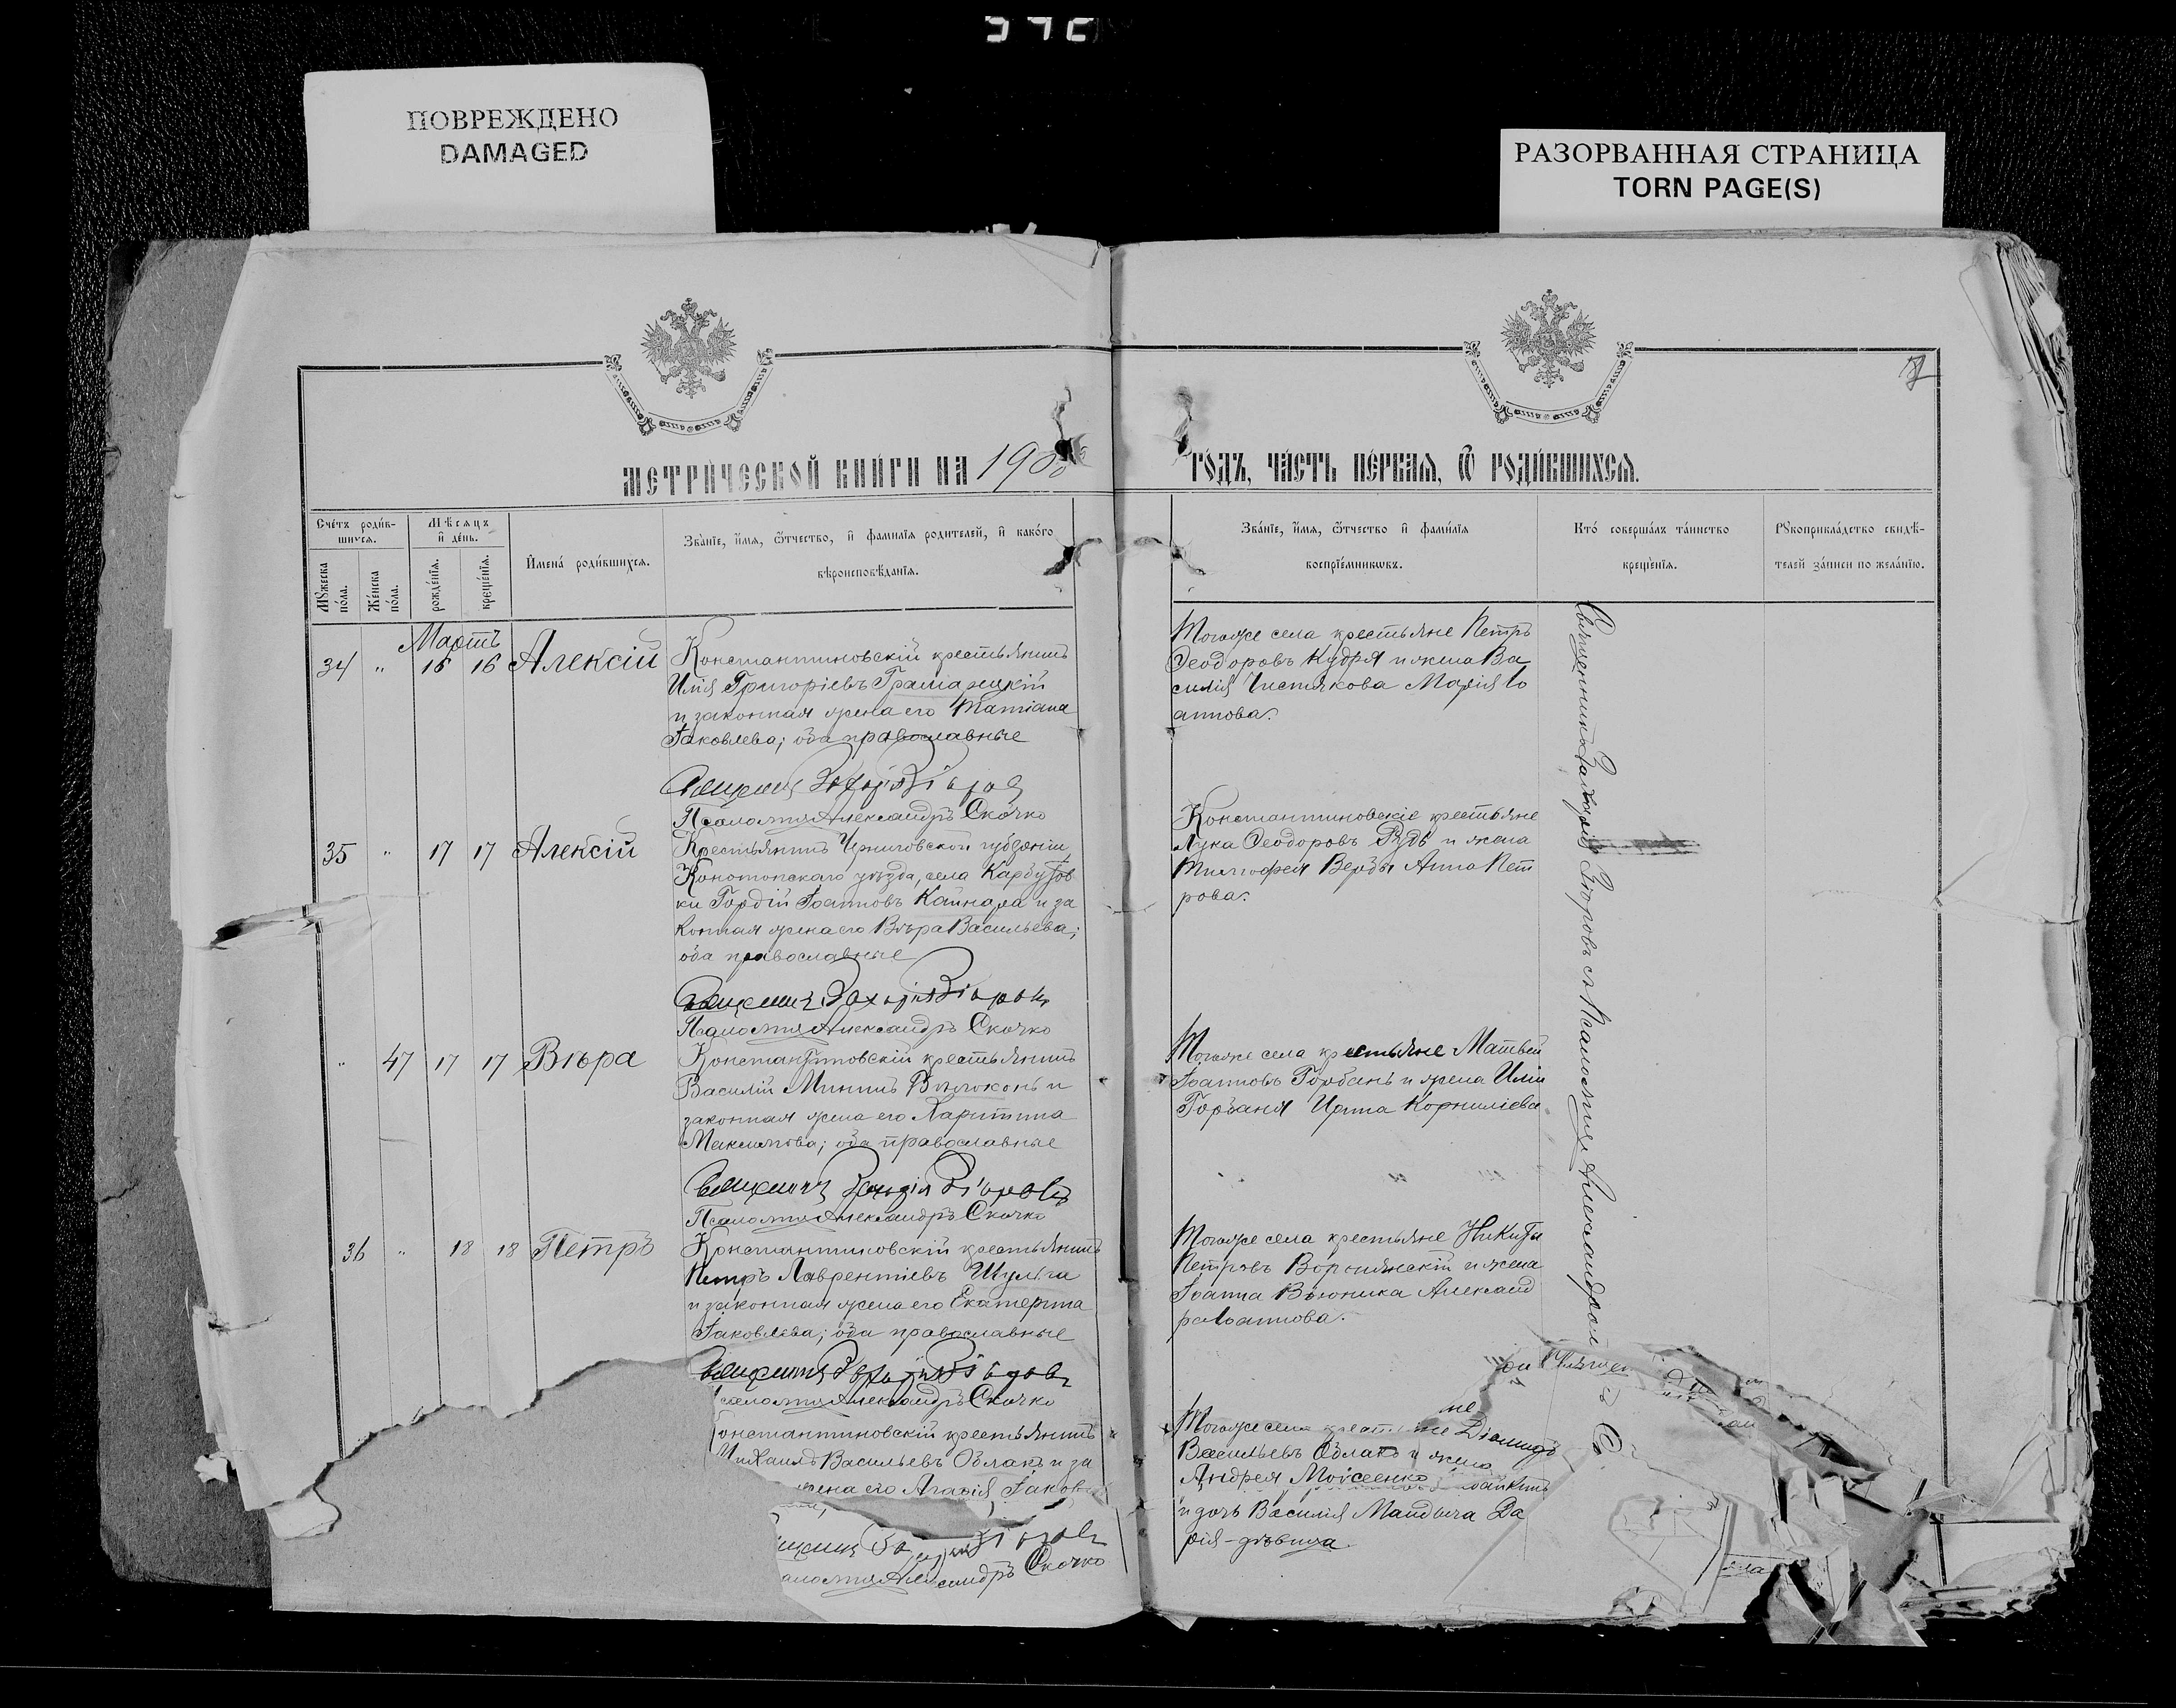 ПОВРЕЖДЕНО
DAMAGED
РАЗОРВАННАЯ СТРАНИЦА
TORN PAGE(S)
МЕТРИ́ЧЕСКОЙ КНИ́ГИ НА 1900
ГО́ДЪ, ЧА́СТЬ ПЕ́РВАЯ, Ѽ РОДИ́ВШИХСЯ.
Сче́тъ роди́в-
шихся.
Мѣ́сяцъ
и҆ де́нь.
И҆мена́ роди́вшихся.
Зва́нїе, и҆́мя, ѻ҆́тчество, и҆ фамилїя родителей, и҆ како́го
вѣроисповѣ́данїя.
Мꙋ́жеска
по́ла.
Же́нска
по́ла.
рожде́нїя.
креще́нїя.
Зва́нїе, и҆́мя, ѻ҆́тчество и҆ фами́лїя
воспрїе́мниковъ.
Кто́ соверша́лъ та́инство
креще́нїя.
Рꙋкоприкла́дство свидѣ́-
телей за́писи по жела́нїю.
Мартъ
34 " 16 16 Алексій
Константиновскій крестьянинъ
Илія Григоріевъ
и законная жена его Татіана
Іаковлева; оба православные
Священникъ Захарія
Псаломщикъ Александръ Скочко
Тогоже села крестьяне Петръ
Ѳеодоровъ Кудря и жена Ва
силія Чистякова Марія Іо
аннова.
35 " 17 17 Алексій
Крестьянинъ Черниговской губерніи
Конотопскаго уѣзда, села Карабутов
ки Гордій Іоанновъ Кайнара и за
конная жена его Вѣра Васильева;
оба православные
Священникъ Захарія
Псаломщикъ Александръ Скочко
Константиновскіе крестьяне
Лука Ѳеодоровъ и жена
Тимоѳея Вербы Анна Пет
рова.
" 47 17 17 Вѣра
Константиновскій крестьянинъ
Василій Мининъ и
законная жена его Харитина
Максимова; оба православные
Священникъ Захарія
Псаломщикъ Александръ Скочко
Тогоже села крестьяне Матвей
Іоанновъ Горбань и жена Иліи
Горбаня Ирина Корниліева
36 " 18 18 Петръ
Константиновскій крестьянинъ
Петръ Лаврентіевъ Шульга
и законная жена его Екатерина
Іаковлева; оба православные
Священникъ Захарія
саломщикъ Александръ Скочко
Тогоже села крестьяне Никита
Петровъ Воронянскій и жена
Іоанна Вьюника Александ
ра Іоаннова.
онстантиновскій крестьянинъ
Михаилъ Васильевъ Облакъ и за
жена его Агафія Іаков
Александръ Скочко
Тогоже села Діомидъ
Васильевъ Облакъ и жена
Андрея Моисеенко
и дочь Василія Мандыча Да
рія-дѣвица.
Священникъ Захарія съ Псаломщикомъ Александромъ